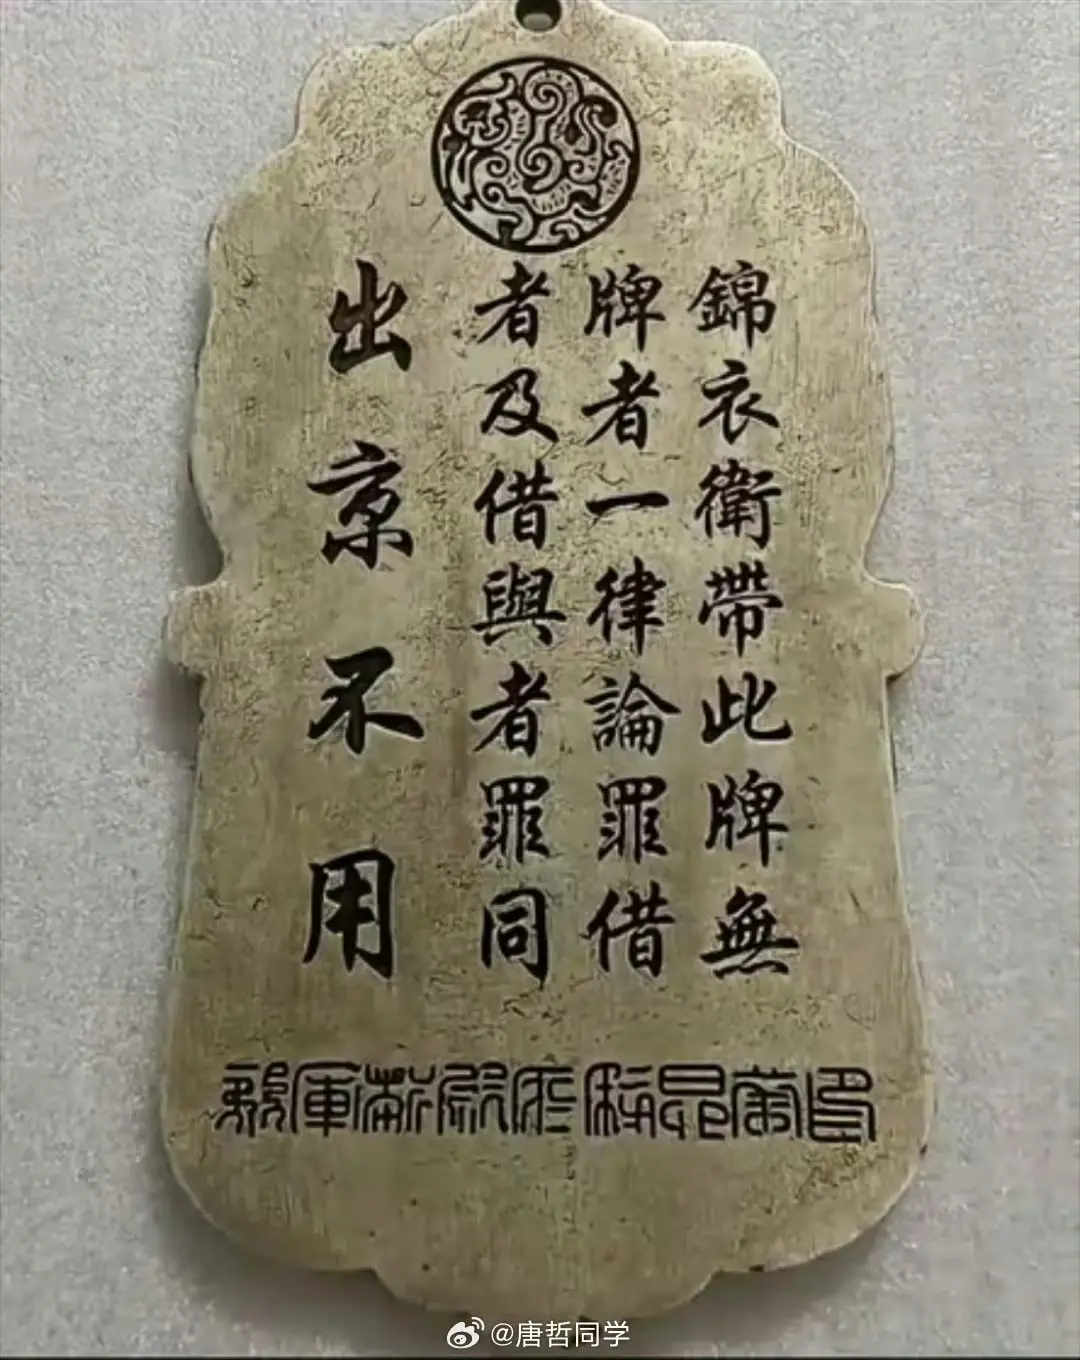 錦衣衛帶此牌無
牌者一律論罪借
者及借與者罪同
出京不用
@唐哲同学